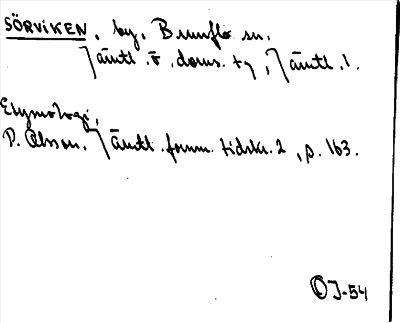 SÖRVIKEN, by, Brunflo sn.
Jämtl. ö. doms. ty, Jämtl. l.
Etymologi,
P. Olsson. Jämtl. fornm. tidskr. 2, p. 163.
OJ-54